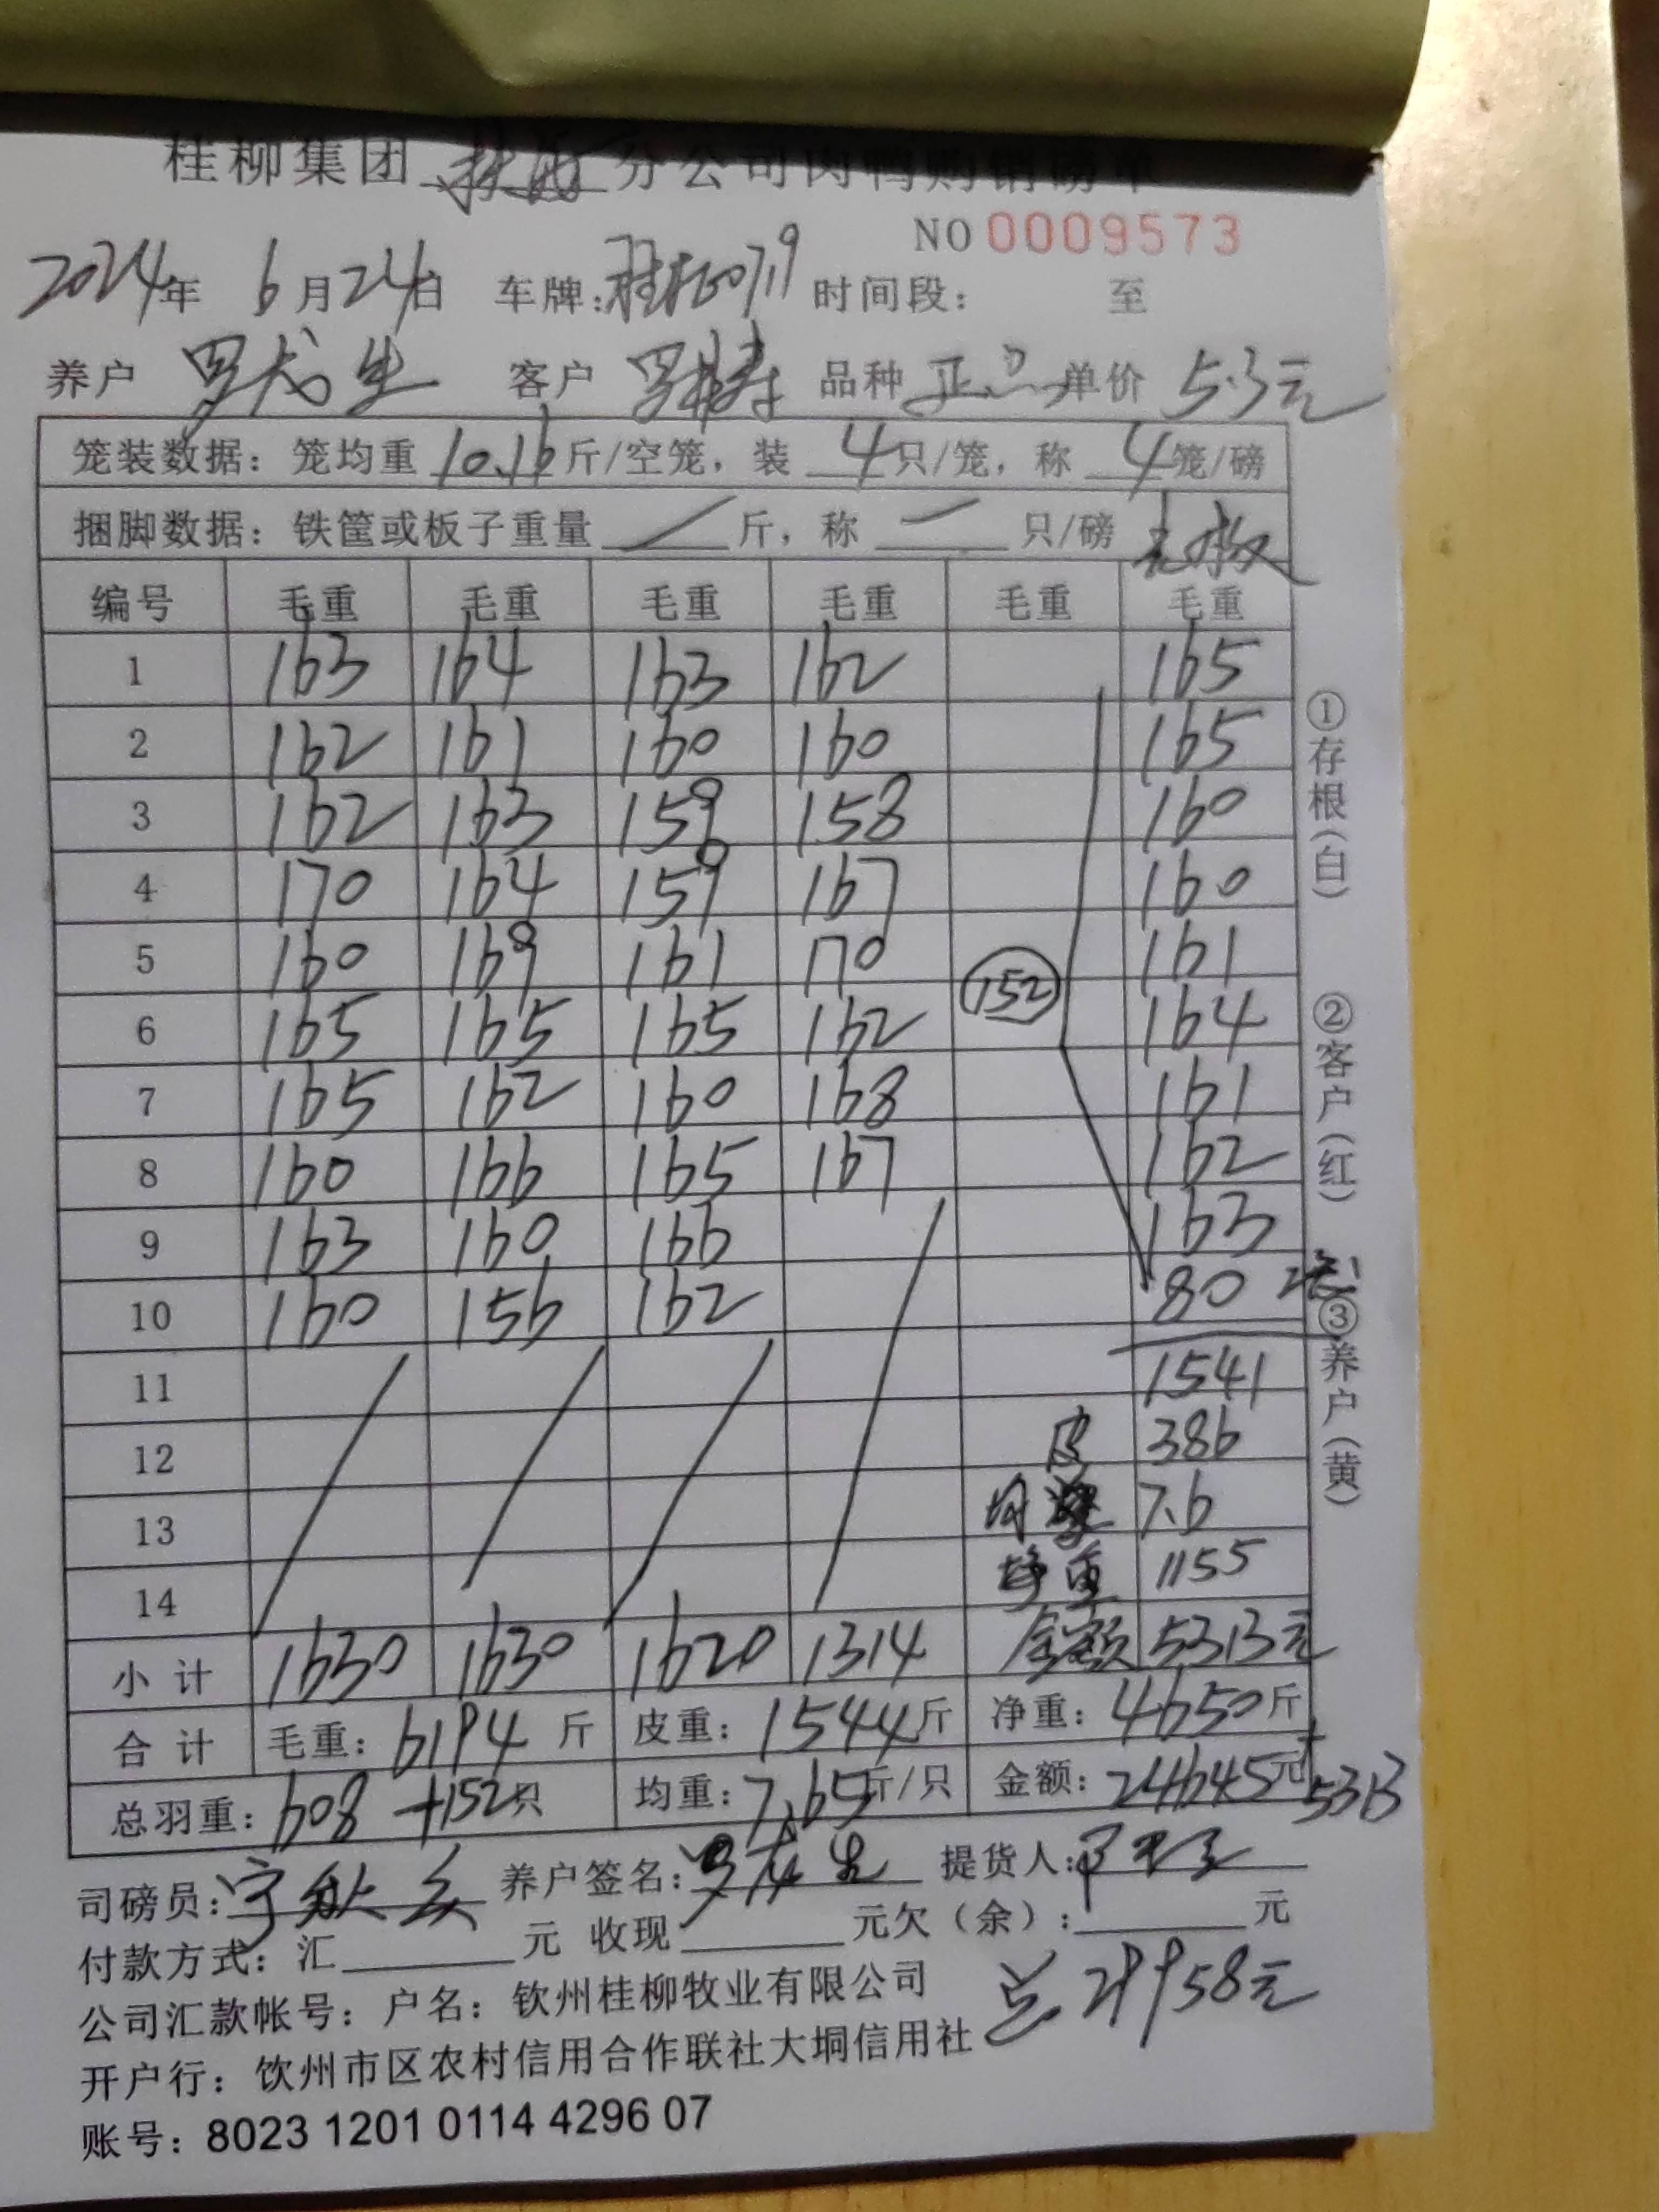 桂柳集团 分公司肉鸭购销磅单
NO 0009573
2024年 6月24日 车牌: 时间段: 至
养户 罗 生 客户 罗 品种 正品 单价 5.3元
笼装数据: 笼均重 10.16 斤/空笼, 装 4 只/笼, 称 4 笼/磅
捆脚数据: 铁筐或板子重量 / 斤, 称 一 只/磅
编号 毛重 毛重 毛重 毛重 毛重 毛重
1 163 164 163 162 165
2 162 161 160 160 165
3 162 163 159 158 160
4 170 164 159 167 160
5 160 169 161 170 161
6 165 165 165 162 152 164
7 165 162 160 168 161
8 160 166 165 167 162
9 163 160 166 163
10 160 156 162 80
11 1541
12 皮 386
13 均重 7.6
14 净重 1155
小计 1630 1630 1620 1314 金额 5313元
合计 毛重: 6194 斤 皮重: 1544斤 净重: 4650斤
总羽重: 608 +152只 均重: 7.65斤/只 金额: 24645元+5313
司磅员: 宁秋 养户签名: 罗 生 提货人:
付款方式: 汇 元 收现 元欠(余): 元
公司汇款帐号: 户名: 钦州桂柳牧业有限公司 总29958元
开户行: 饮州市区农村信用合作联社大垌信用社
账号: 8023 1201 0114 4296 07
①存根(白) ②客户(红) ③养户(黄)